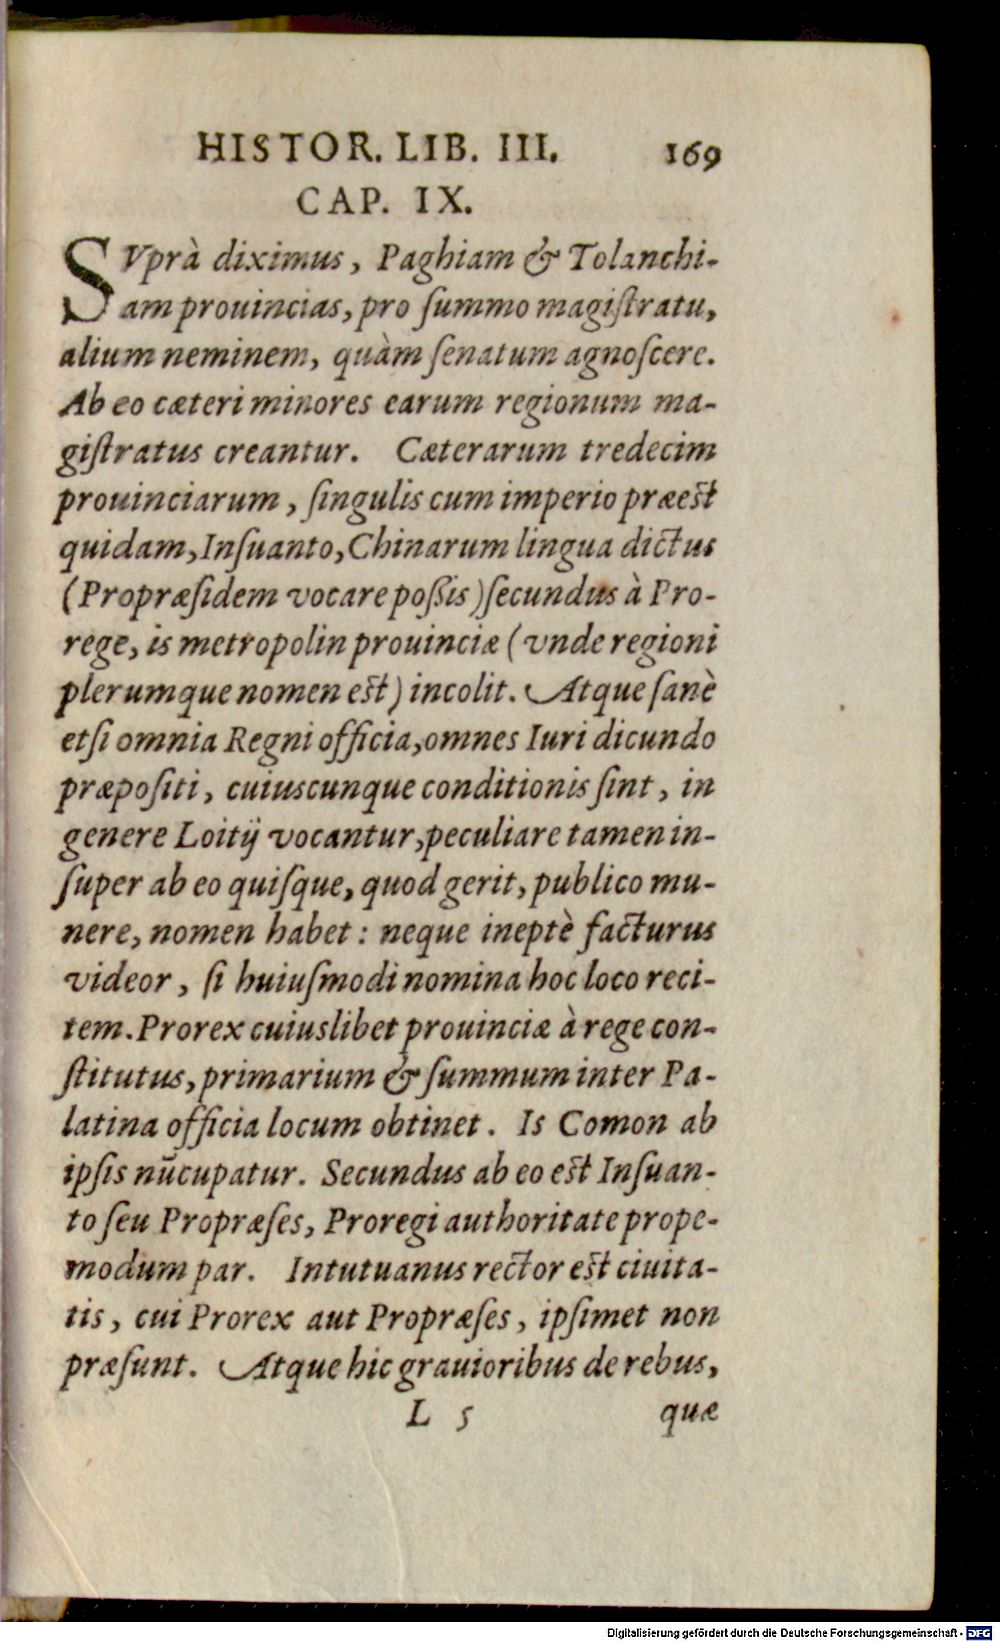 HISTOR. LIB. III. 169
CAP. IX.
SVprà diximus, Paghiam & Tolanchi-
am prouincias, pro ſummo magiſtratu,
alium neminem, quàm ſenatum agnoſcere.
Ab eo cæteri minores earum regionum ma-
giſtratus creantur. Cæterarum tredecim
prouinciarum, ſingulis cum imperio præeſt
quidam, Inſuanto, Chinarum lingua dictus
(Propræſidem vocare poßis) ſecundus à Pro-
rege, is metropolin prouinciæ (vnde regioni
plerumque nomen eſt) incolit. Atque ſanè
etſi omnia Regni officia, omnes Iuri dicundo
præpoſiti, cuiuscunque conditionis ſint, in
genere Loitij vocantur, peculiare tamen in-
ſuper ab eo quiſque, quod gerit, publico mu-
nere, nomen habet: neque ineptè facturus
videor, ſi huiuſmodi nomina hoc loco reci-
tem. Prorex cuiuslibet prouinciæ à rege con-
ſtitutus, primarium & ſummum inter Pa-
latina officia locum obtinet. Is Comon ab
ipſis nūcupatur. Secundus ab eo eſt Inſuan-
to ſeu Propræſes, Proregi authoritate prope-
modum par. Intutuanus rector eſt ciuita-
tis, cui Prorex aut Propræſes, ipſimet non
præſunt. Atque hic grauioribus de rebus,
L 5 quæ
Digitalisierung gefördert durch die Deutsche Forschungsgemeinschaft - DFG